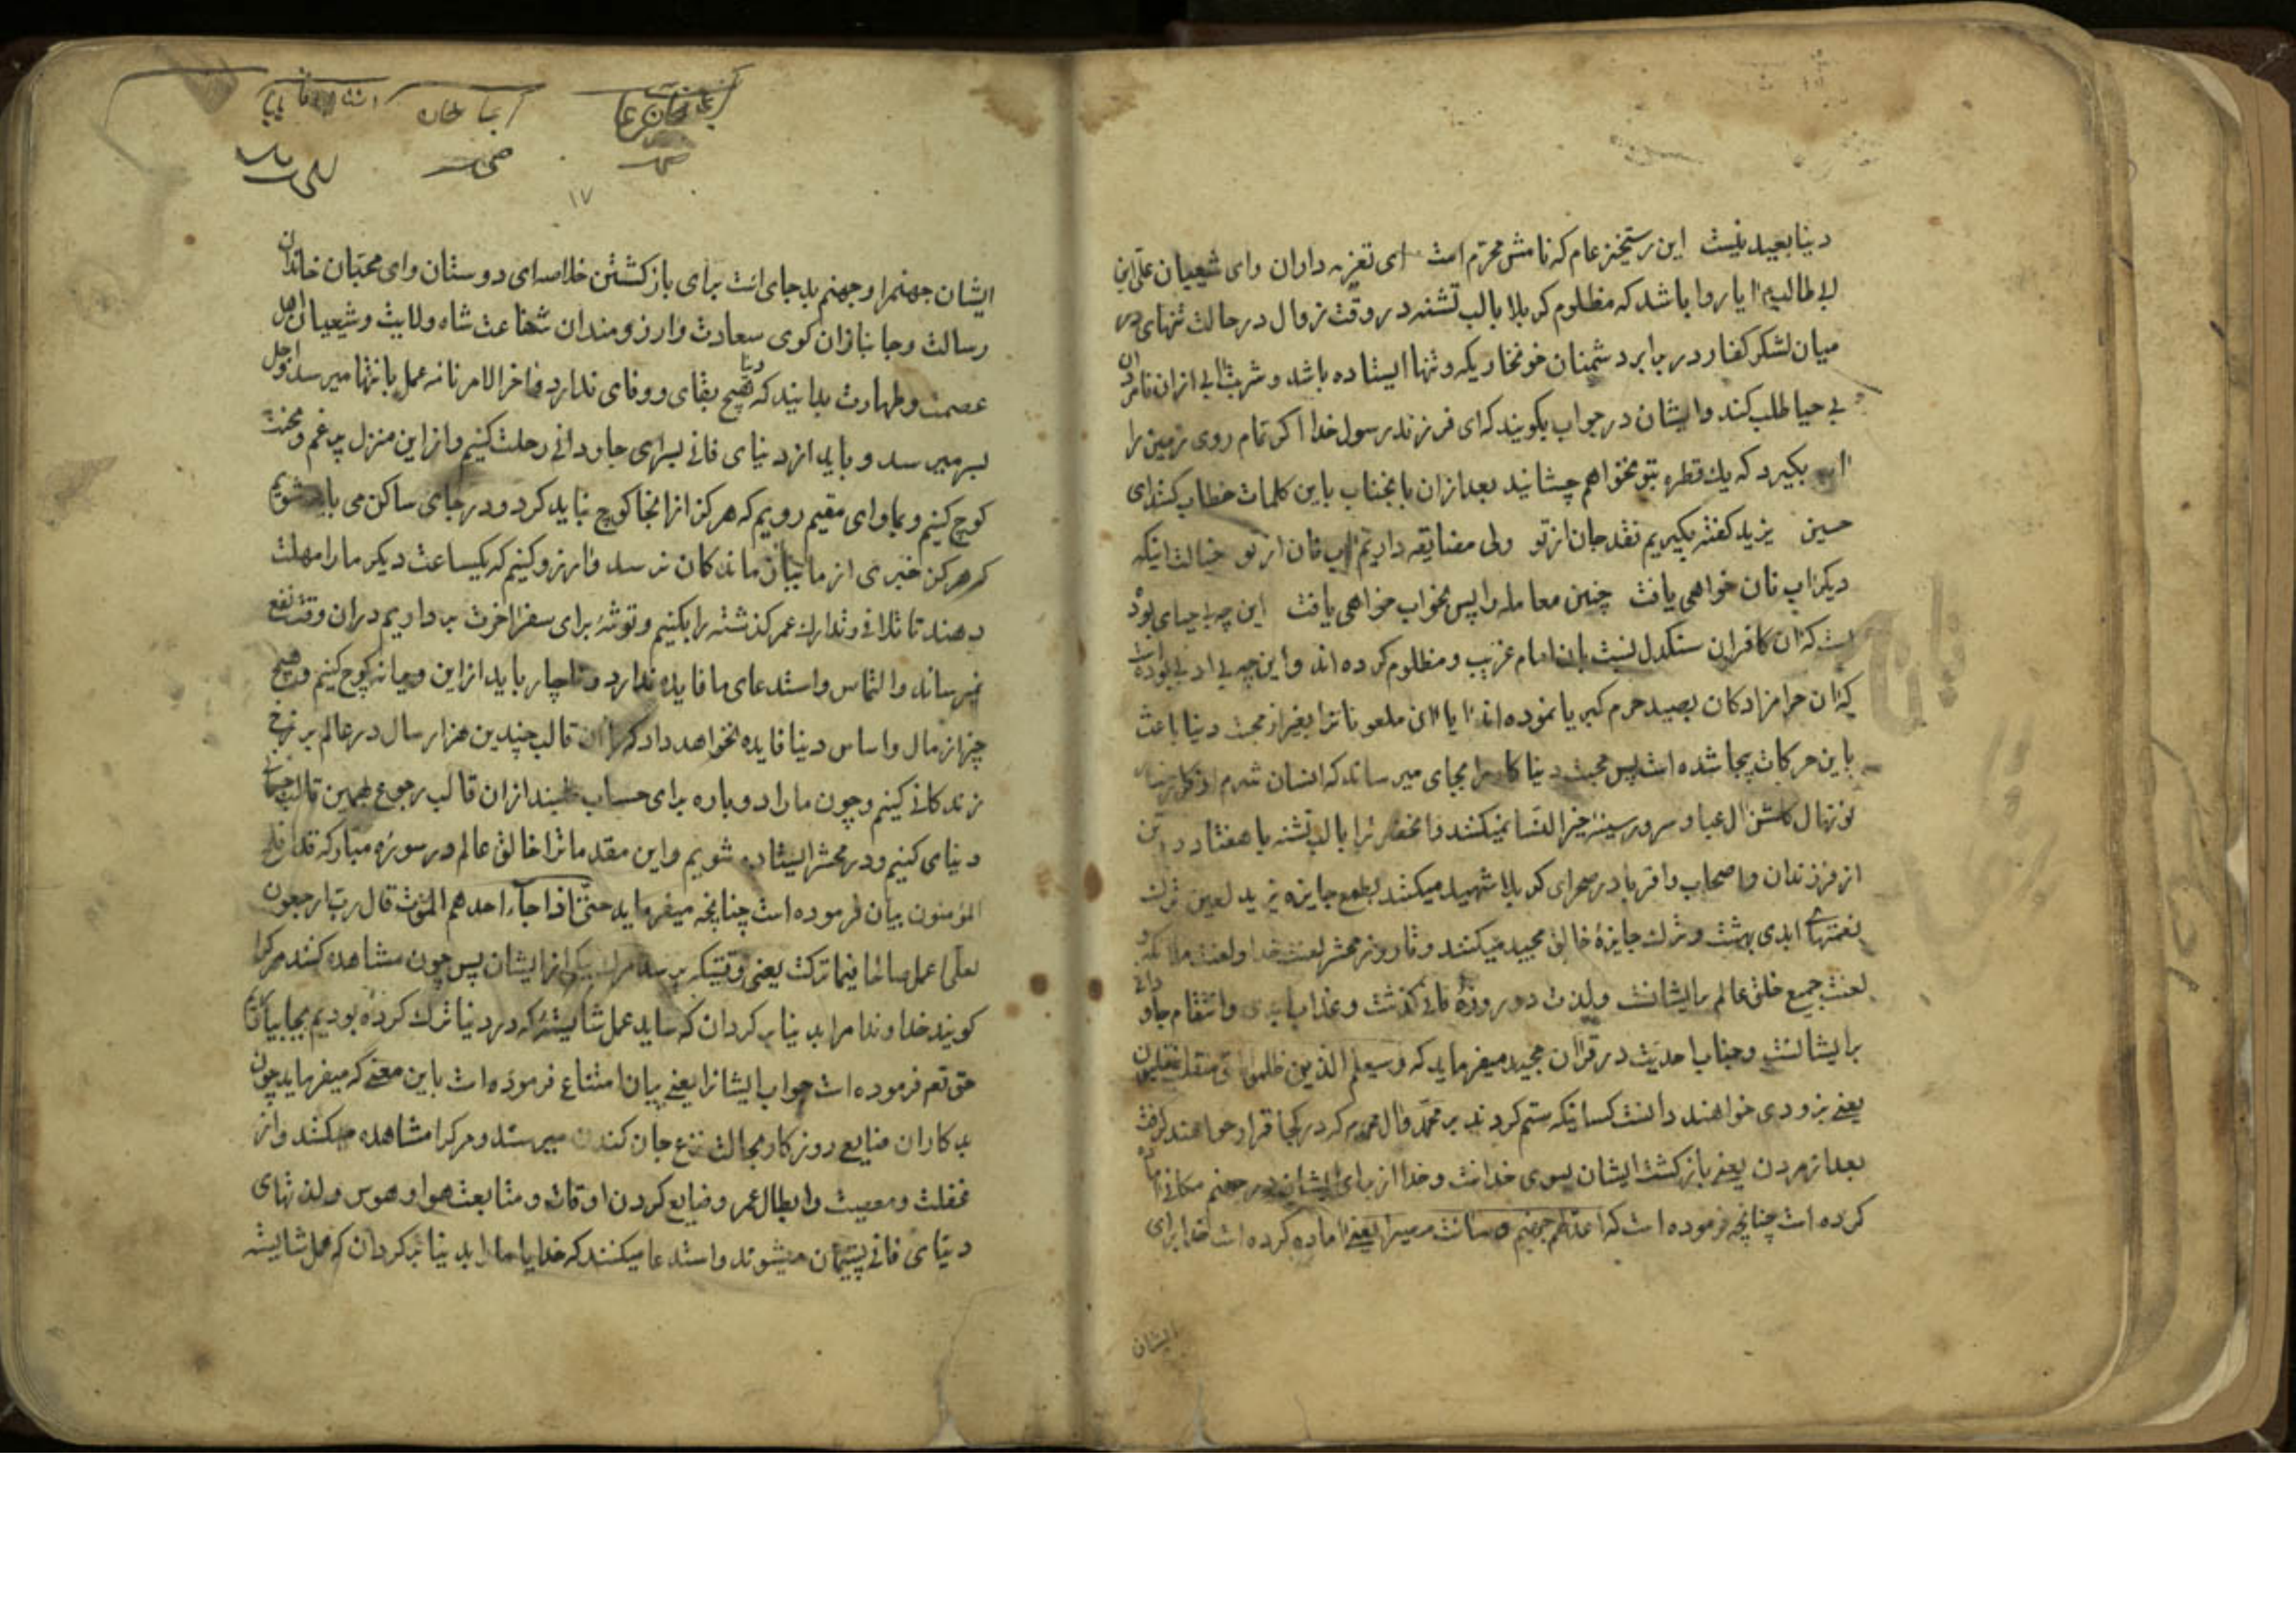 دنیا بعید نیست این رستخیز عام که نامش محرّم است ای تعزیه داران وای شیعیان علی ابن
ابیطالب ایا روا باشد که مظلوم کربلا بالب تشنه در وقت زوال در حالت تنهای در
میان لشکر کفار و در برابر دشمنان خونخوار یکه و تنها ایستاده باشد و شربت ابی ازان نامردان
بی حیا طلب کند وایشان در جواب بکویند که ای فرزند رسول خدا اکر تمام روی زمین را
اب بکیرد که یك قطره بتو نخواهم چشانید بعد ازان بانجناب باین کلمات خطاب کنند ای
حسین یزید کفته بکیریم نقد جان از تو ولی مضایقه داریم اب نان از تو خیالت اینکه
دیکر اب نان خواهی یافت چنین معامله را پس بخواب خواهی یافت این چه بیحیای بوده
است که ان کافران سنکدل نسبت بان امام غریب و مظلوم کرده اند واین چه بی ادبی بوده است
که ان حرامزادکان بصید حرم کبریا نموده اند ایا ان ملعونانرا بغیر از محبت دنیا باعث
باین حرکات بیجا شده است پس محبت دنیا کار را بجای میرساند که انسان شرم از
نونهال کلشن ال عبا و سرور سینهٔ خیر النسا نمیکنند و انحضرترا بالب تشنه با هفتاد و دو تن
از فرزندان و اصحاب و اقربا در صحرای کربلا شهید میکنند بطمع جایزه یزید لعین ترك
نعمتهای ابدی بهشت و ترك جایزهٔ خالق مجید میکنند و تا روز محشر لعنت خدا و لعنت ملائکه و
لعنت جمیع خلق عالم برایشانست ولذت دو روزهٔ فانی کذشت و عذاب ابدی وانتقام جاودانی
برایشانست و جناب احدیت در قران مجید میفرماید که وسیعلم الذین ظلموا ای منقلب ینقلبون
یعنی بزودی خواهند دانست کسانیکه ستم کردند بر محمد وال محمد که در کجا قرار خواهند کرفت
بعد از مردن یعنی بازکشت ایشان بسوی خدا است و خدا از برای ایشان در جهنم مکانی اماده
کرده است چنانچه فرموده است که اعدّ لهم جهنم و سائت مصیرا یعنی اماده کرده است خدا برای
ایشان
۱۷
ایشان جهنمرا و جهنم بد جای است برای بازکشتن خلاصه ای دوستان وای محبّان خاندان
رسالت و جانبازان کوی سعادت وارزومندان شفاعت شاه ولایت وشیعیان اهل
عصمت و طهارت بدانید که دنیا هیچ بقای و وفای ندارد و اخر الامر نامه عمل بانتها میرسد و اجل
بسر میرسد و باید از دنیای فانی بسرای جاودانی رحلت کنیم و از این منزل پر غم و محنت
کوچ کنیم و بماوای مقیم رویم که هرکز از انجا کوچ نباید کرد و در جای ساکن می باید شویم
که هرکز خبری از ما ببازماندکان نرسد و ارزو کنیم که یکساعت دیکر ما را مهلت
دهند تا تلافی و تدارك عمر کذشته را بکنیم و توشهٔ برای سفر اخرت برداریم دران وقت نفع
نمیرساند و التماس و استدعای ما فایده ندارد و ناچار باید از این ویرانه کوچ کنیم و هیچ
چیز از مال و اساس دنیا فایده نخواهد داد که با ان قالب چندین هزار سال در عالم برزخ
زندکانی کنیم و چون ما را دوباره برای حساب طلبند ازان قالب رجوع بهمین قالب جسمانی
دنیای کنیم و در محشر ایستاده شویم و این مقدماترا خالق عالم در سورهٔ مبارکه قد افلح
المؤمنون بیان فرموده است چنانچه میفرماید حتّی اذا جاء احدهم الموت قال ربّ ارجعون
لعلّی اعمل صالحا فیما ترکت یعنی وقتیکه برسد مرك یکی از ایشان پس چون مشاهده کنند مرکرا
کویند خداوندا مرا بدنیا برکردان که شاید عمل شایستهٔ که در دنیا ترك کرده بودیم بجا بیاوریم
حق تعم فرموده است جواب ایشانرا یعنی بیان امتناع فرموده است باین معنی که میفرماید چون
بدکاران ضایع روزکار بحالت نزع جان کندن میرسند و مرکرا مشاهده میکنند و از
غفلت و معصیت و ابطال عمر و ضایع کردن اوقات و متابعت هوا و هوس و لذتهای
دنیای فانی پشیمان میشوند و استدعا میکنند که خدایا ما را بدنیا برکردان که عمل شایسته